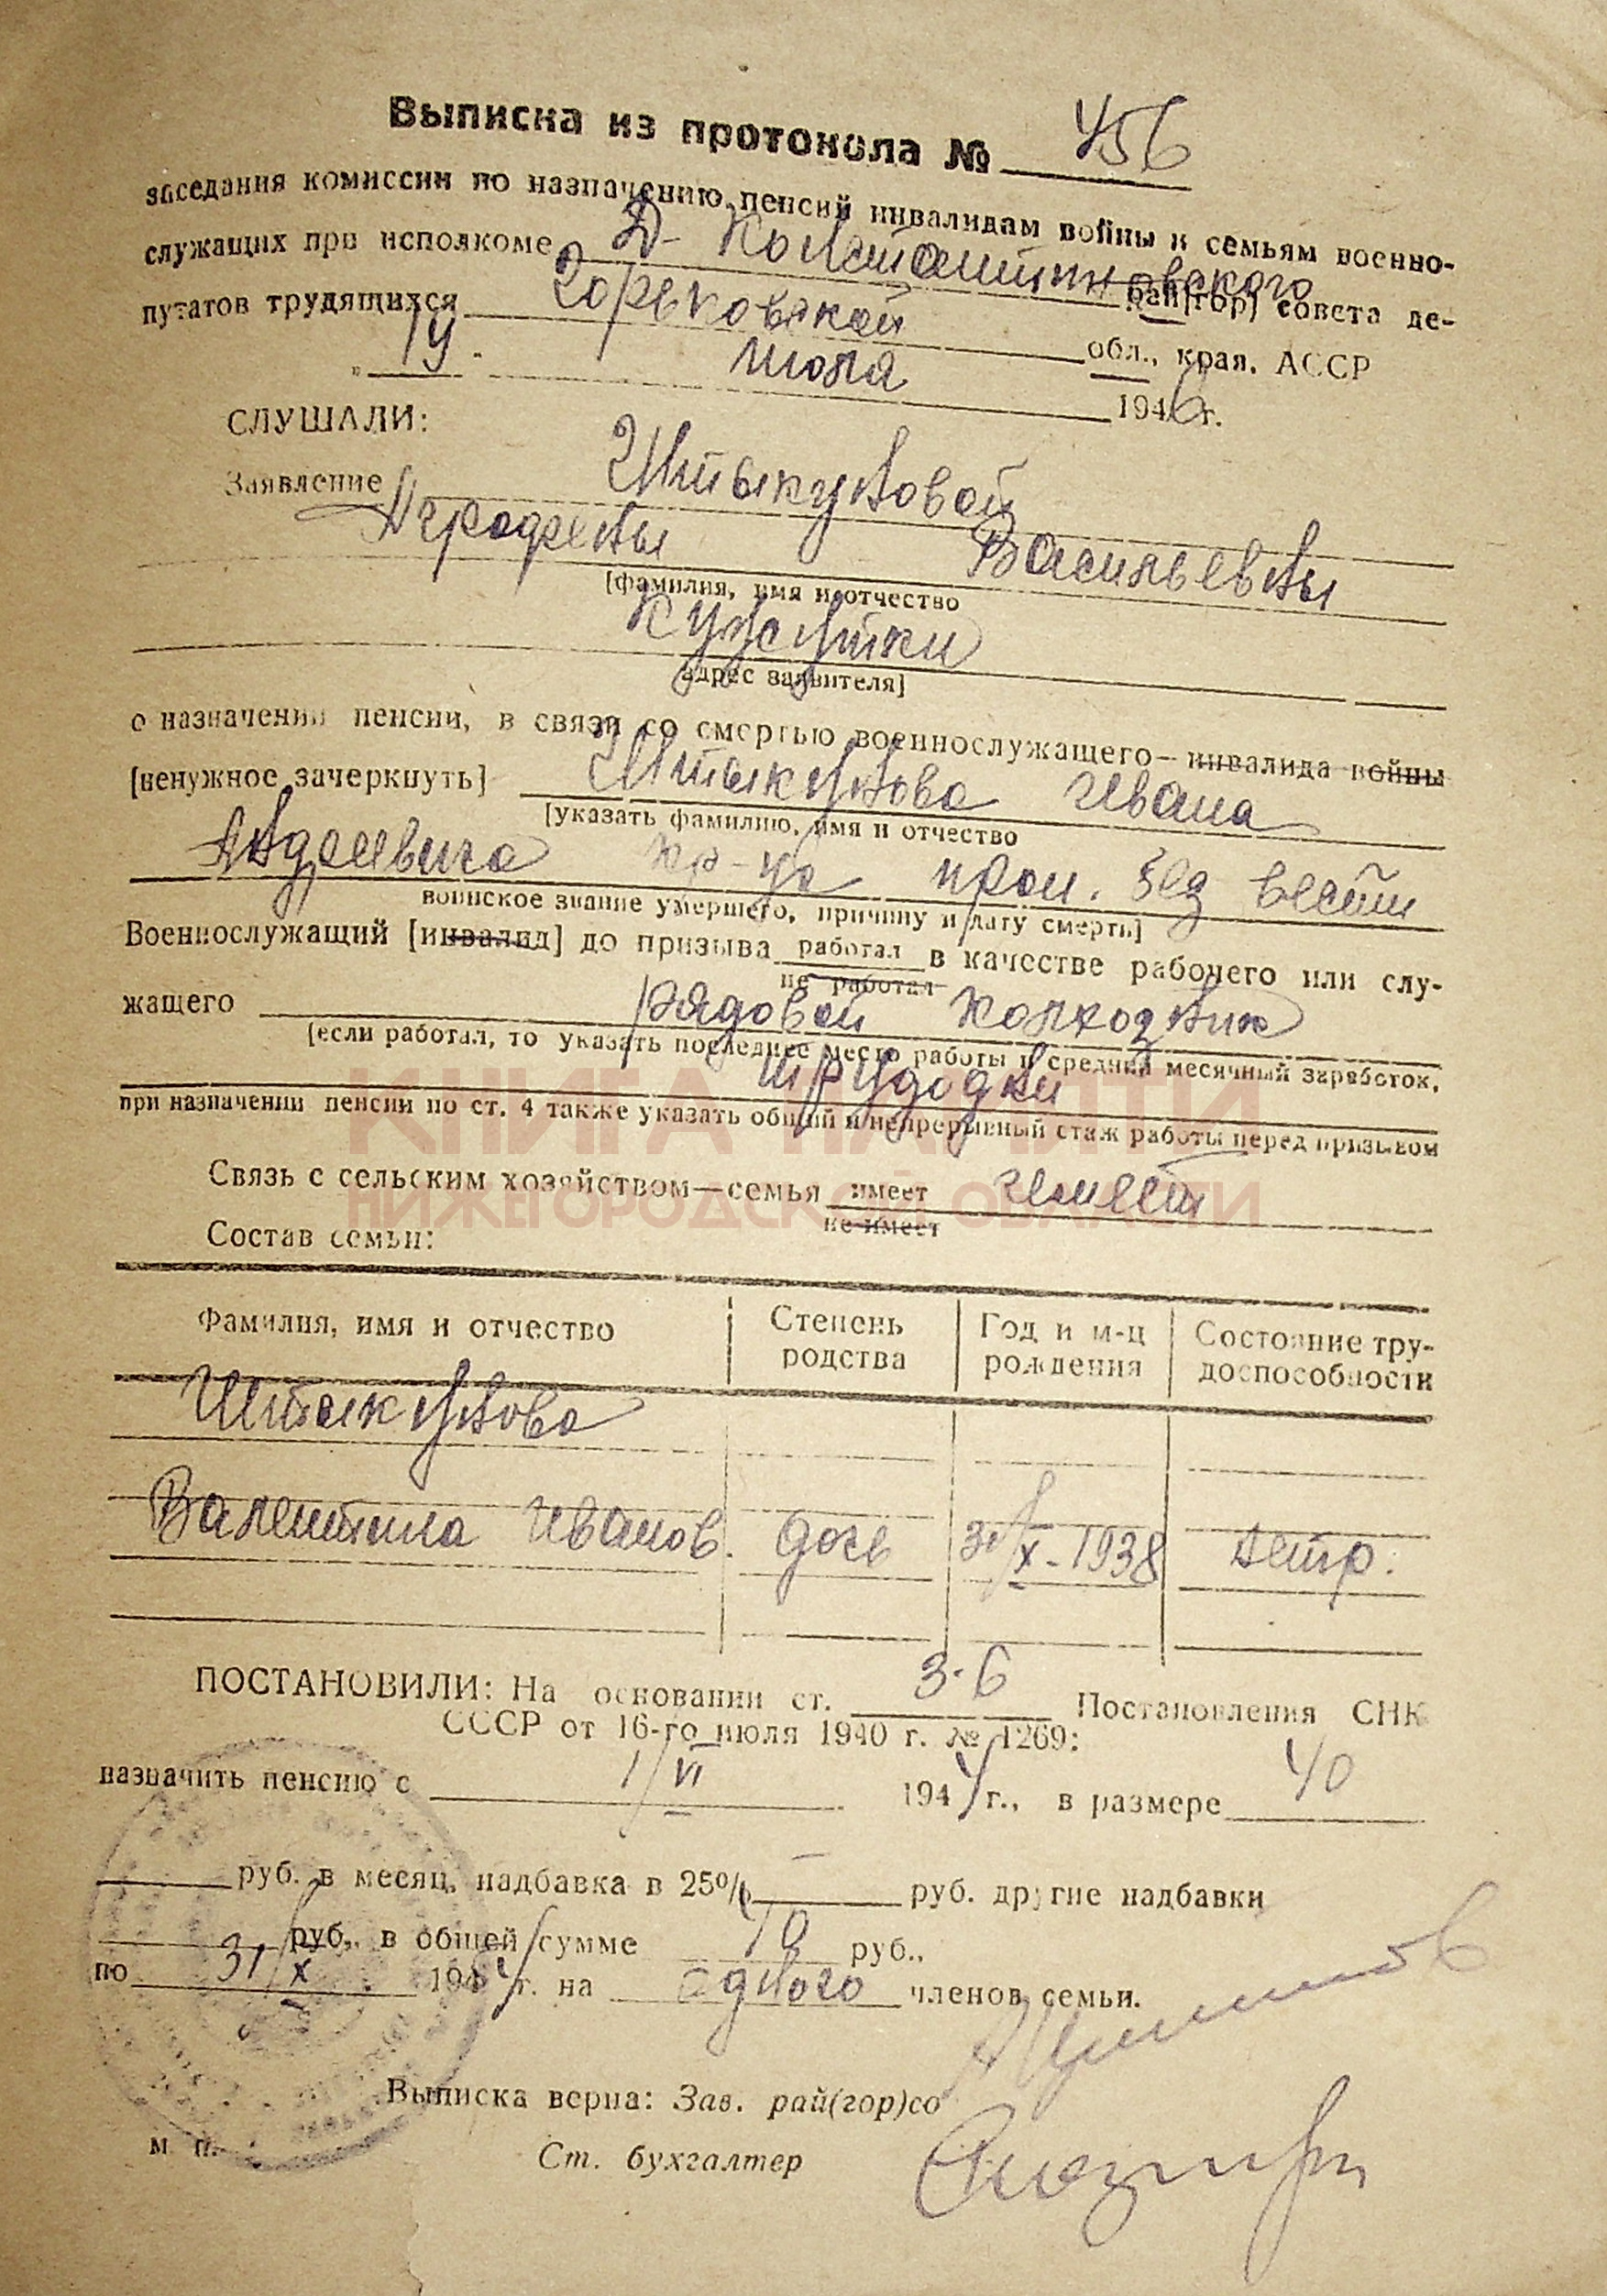 Выписка из протокола № 456
заседания комиссии по назначению пенсий инвалидам войны и семьям военно-
служащих при исполкоме Д-Константиновского рай[гор] совета де-
путатов трудящихся Горьковской обл., края, АССР
" 19 - июля 1946 г.
СЛУШАЛИ:
Заявление Штыкуновой
Аграфены Васильевны
[фамилия, имя и отчество
Кужутки
адрес заявителя]
о назначении пенсии, в связи со смертью военнослужащего—инвалида войны
[ненужное зачеркнуть] Штыкунова Ивана
[указать фамилию, имя и отчество
Авдеевича кр-ца проп. без вести
воинское звание умершего, причину и дату смерти]
Военнослужащий [инвалид] до призыва работал в качестве рабочего или слу-
не работал
жащего рядовой колхозник
[если работал, то указать последнее место работы и средний месячный заработок,
трудодни
при назначении пенсии по ст. 4 также указать общий и непрерывный стаж работы перед призывом
КНИГА ПАМЯТИ
НИЖЕГОРОДСКОЙ ОБЛАСТИ
Связь с сельским хозяйством—семья имеет имеет
не имеет
Состав семьи:
Фамилия, имя и отчество Степень родства Год и м-ц рождения Состояние тру-доспособности
Штыкунова
Валентина Иванов. дочь 31/X-1938 нетр.
ПОСТАНОВИЛИ: На основании ст. 3-6 Постановления СНК
СССР от 16-го июля 1940 г. № 1269:
назначить пенсию с 1/VI 1944 г., в размере 40
руб. в месяц, надбавка в 25% — руб. другие надбавки
руб., в общей сумме 40 руб.,
по 31/X 1954 г. на одного членов семьи.
Выписка верна: Зав. рай(гор)со
м. п. Ст. бухгалтер